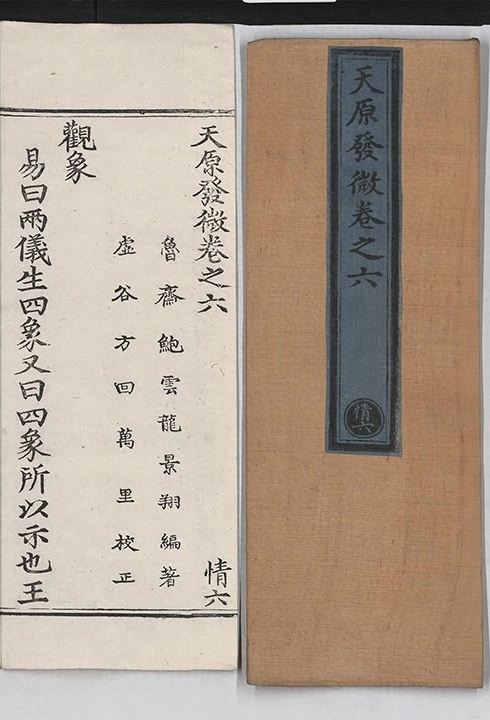 天原發微卷之六
情六
天原發微卷之六 情六
魯齋鮑雲龍景翔編著
虛谷方回萬里校正
觀象
易曰兩儀生四象又曰四象所以示也王